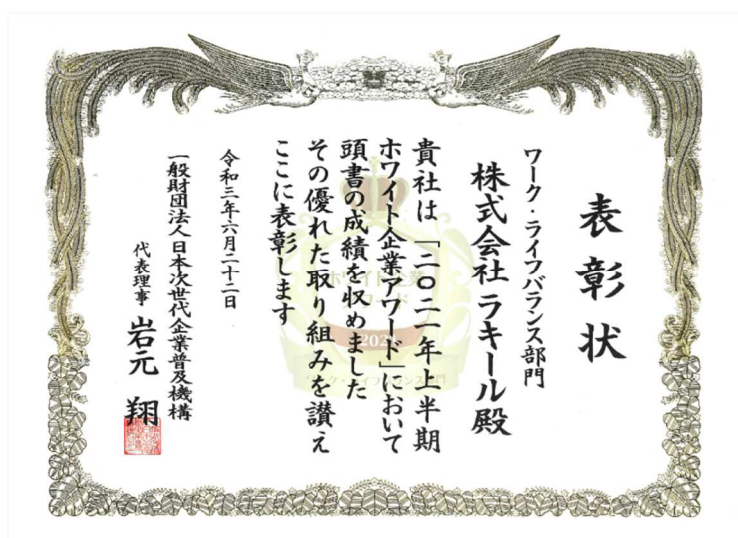 表彰状
ワーク・ライフバランス部門
株式会社ラキール殿
貴社は「二〇二一年上半期
ホワイト企業アワード」において
頭書の成績を収めました
その優れた取り組みを讃え
ここに表彰します
令和三年六月二十二日
一般財団法人日本次世代企業普及機構
代表理事 岩元 翔